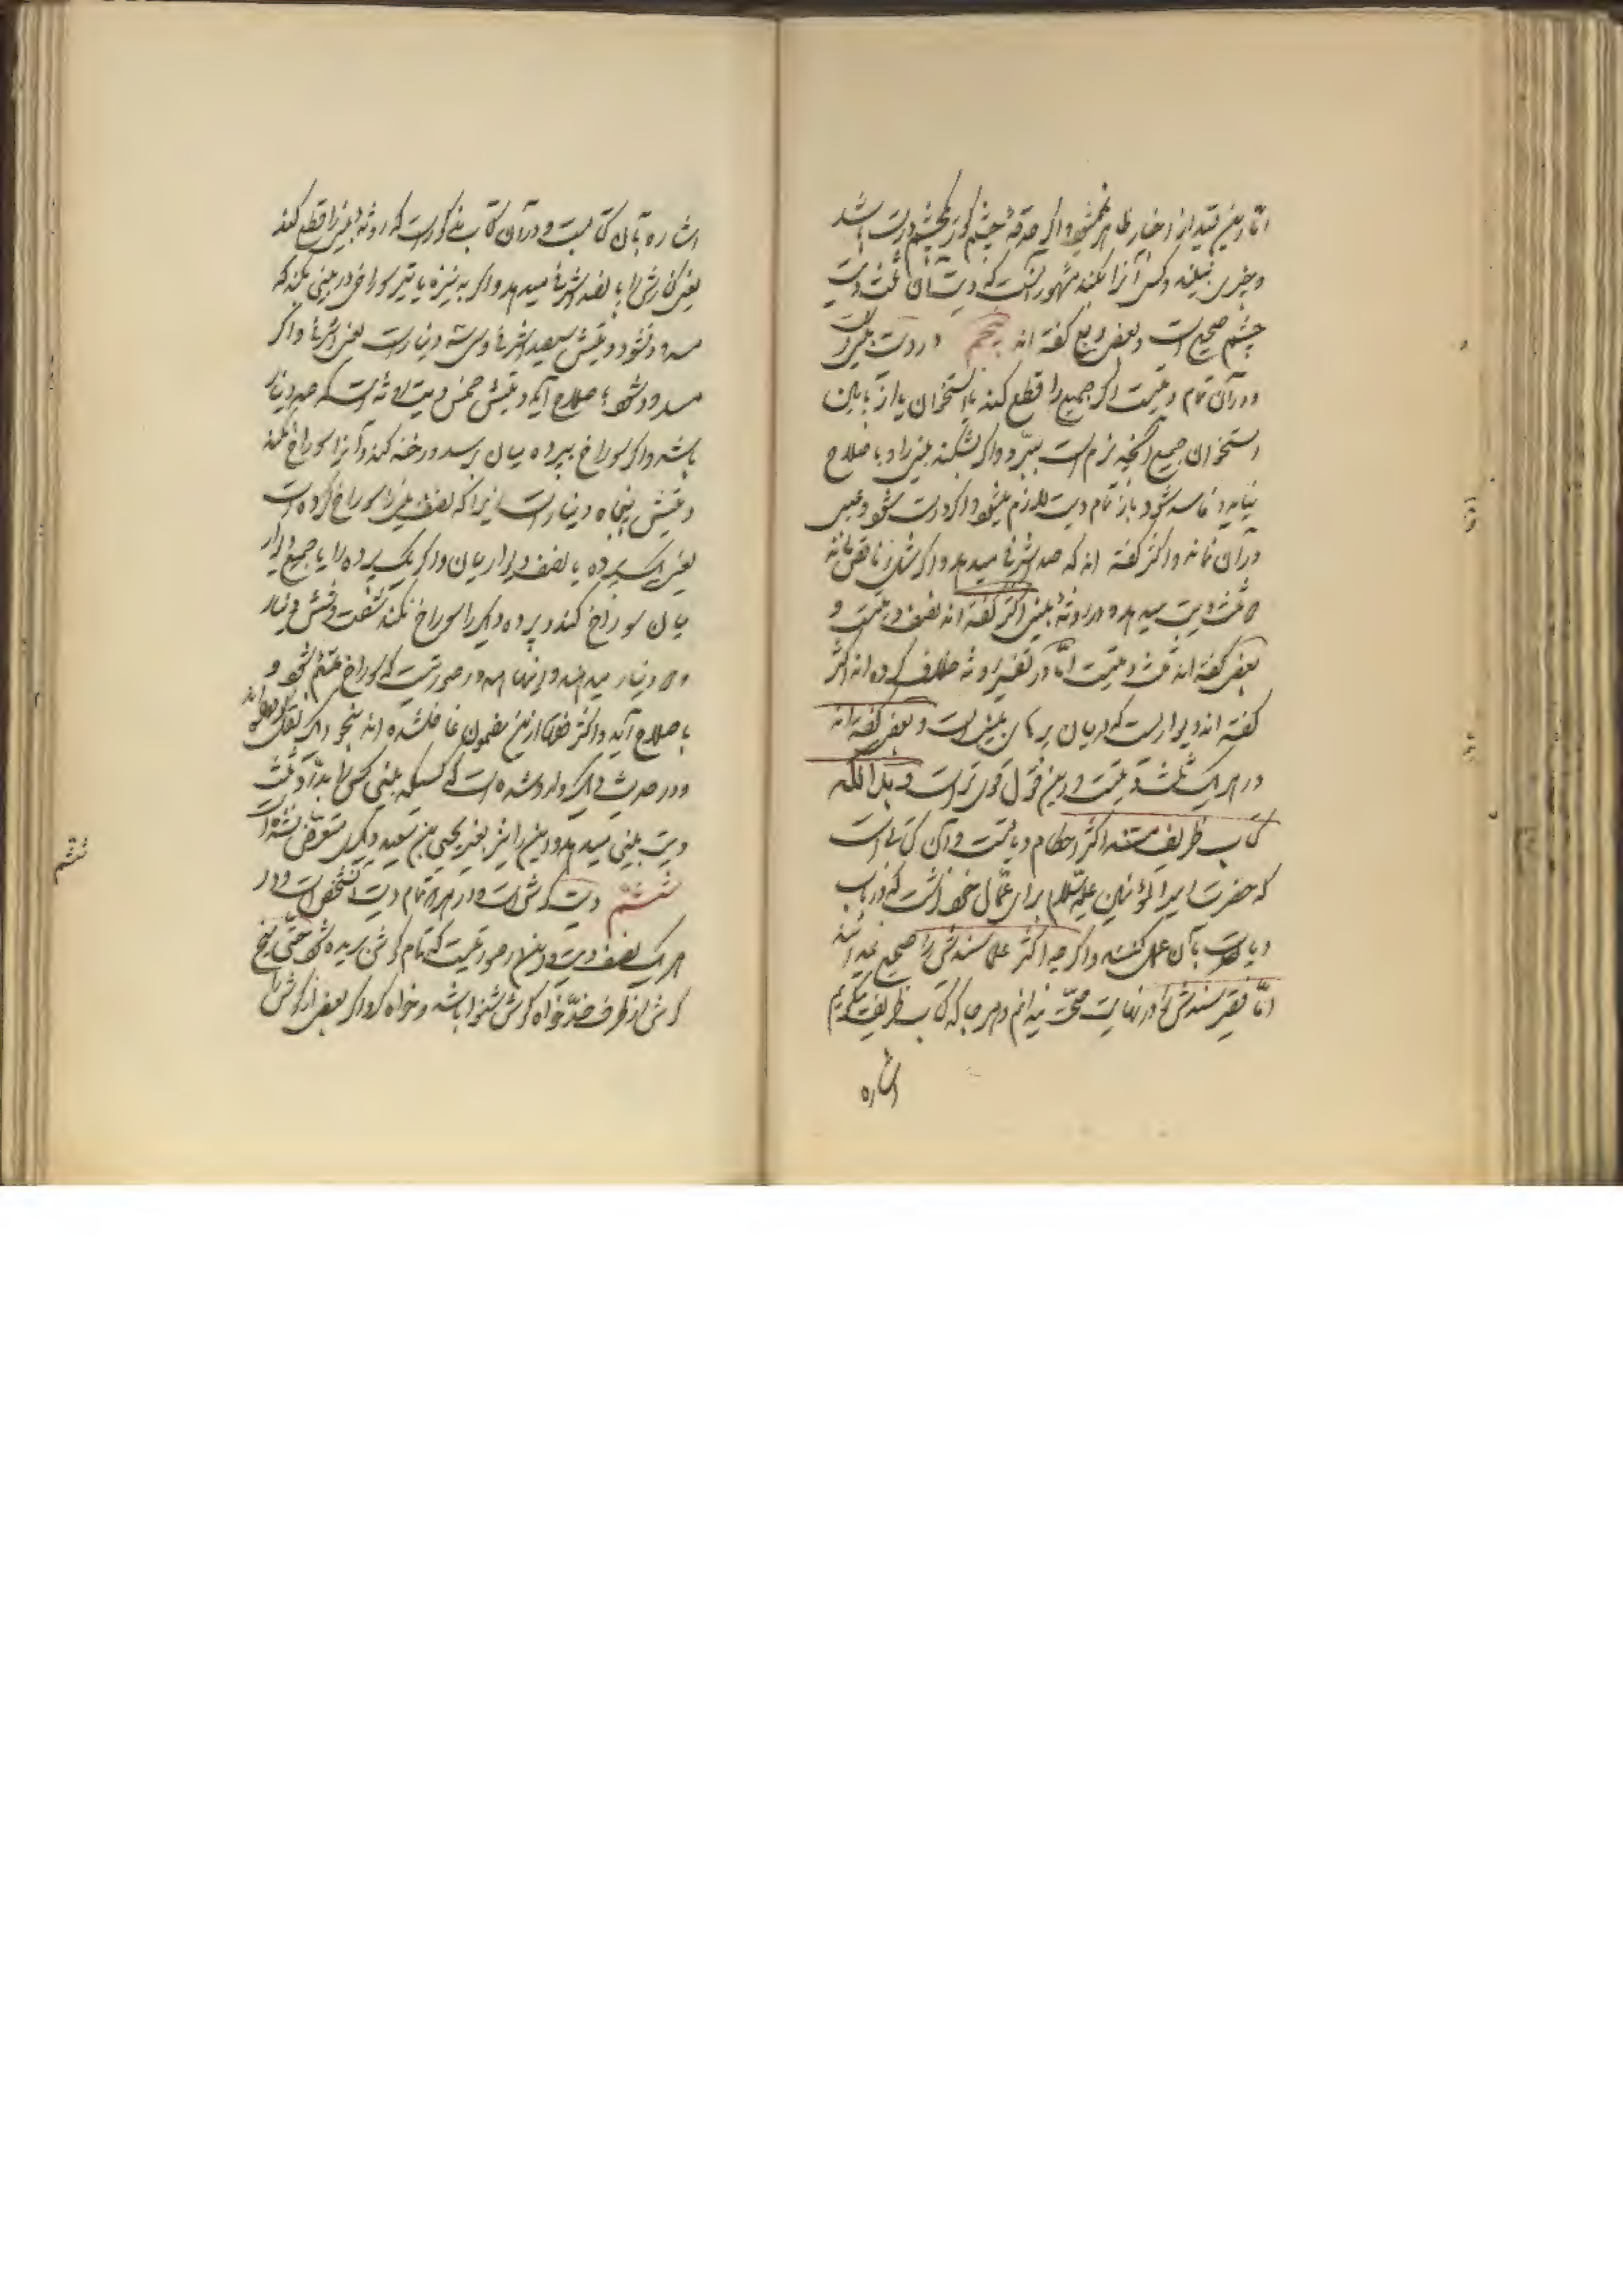 اما این قید از اخبار ظاهر نمیشود و اگر حدقهٔ چشم کور بچشم درست باشد
و چیزی نبیند و کسی آنرا بکند مشهور آنست که دیت آن ثلث دیت
چشم صحیح است و بعضی ربع گفته اند پنجم در دیت بینی است
و در آن تمام دیتست اگر جمیع را قطع کند با استخوان یا از پایین
استخوان جمیع آنچه نرم است ببرد و اگر بشکند بینی را و باصلاح
نیاید و فاسد شود باز تمام دیت لازم میشود و اگر درست شود و عیبی
در آن نماند و اکثر گفته اند که صد اشرفی میدهد و اگر شل
ثلث دیت میدهد و در روثهٔ بینی اکثر گفته اند نصف دیتست و
بعضی گفته اند ثلث دیتست اما در تفسیر روثه خلاف کرده اند اکثر
گفته اند دیواریست که در میان پرهای بینی است و بعضی گفته اند
در هر یک ثلث دیتست و این قول قوی تر است و بدانکه
کتاب ظریف مستند اکثر احکام دیاتست و آن کتابی است
که حضرت امیر المؤمنین علیه السلام برای عمال خود نوشت که در باب
دیات بآن عمل کنند و اگر چه اکثر علما سندش را صحیح نمیدانند
اما فقیر سندش را در نهایت صحت میدانم و هر جا که کتاب ظریف میگویم
اشاره
اشاره بآن کتابست و در آن کتاب مذکور است که روثهٔ بینی را قطع کند
یعنی کنارش را پانصد اشرفی میدهد و اگر به نیزه یا تیر سوراخی در بینی بکند که
مسدود نشود دیتش سیصد اشرفی و سی و سه دینار است یعنی اشرفی و اگر
مسدود شود و باصلاح آید دیتش خمس دیت روثه است که صد دینار
باشد و اگر سوراخ بپردهٔ میان رسد و رخنه کند و آنرا سوراخ نکند
دیتش پنجاه دینار است زیرا که نصف بینی را سوراخ کرده است
یعنی یک پرده با نصف دیوار میان و اگر یک پرده را با جمیع دیوار
میان سوراخ کند و پردهٔ دیگر را سوراخ نکند شصت و شش دینار
و دینار میدهد و اینها همه در صورتیست که سوراخ ملتئم شود و
باصلاح آید و اکثر علما از این مضمون غافل شده اند بنحو دیگر نقل کرده اند
و در حدیث دیگر وارد شده است که کسیکه بینی کسی را بدرد ثلث
دیت بینی میدهد و این را بغیر یحیی بن سعید دیگری متعرض نشده است
ششم دیت گوش است و در هر دو تمام دیت آنشخص است و در
هر یک نصف دیت و این در صورتیست که تمام گوش بریده شود حتی بیخ
گوش از طرف خد خواه گوش شنوا باشد و خواه کر و اگر بعضی از گوش را
ششم